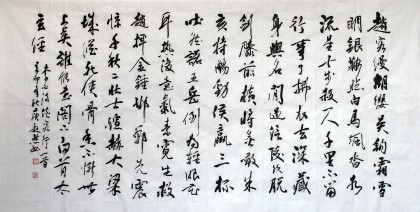 趙客縵胡纓吴鈎霜雪
明銀鞍照白馬颯沓如
流星十步殺一人千里不留
行事了拂衣去深藏
身與名閑過信陵飲脱
劍膝前横將炙啖朱
亥持觴勸侯嬴三杯
吐然諾五岳倒為輕眼花
耳熱後意氣素霓生救
趙揮金錘邯鄲先震
驚千秋二壯士烜赫大梁
城縱死俠骨香不慚世
上英誰能書閣下白首太
玄經
李白詩俠客行一首
辛卯年秋